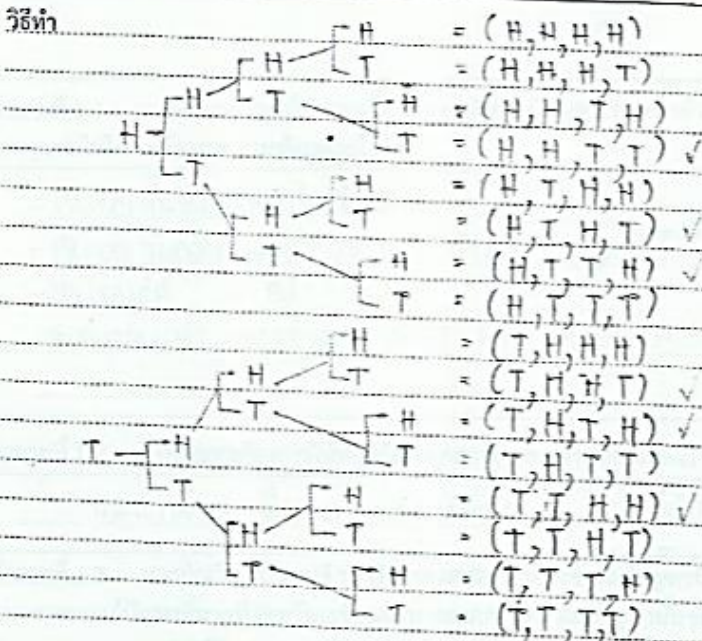 วิธีทำ
H = (H,H,H,H)
H T = (H,H,H,T)
H T H = (H,H,T,H)
H T = (H,H,T,T) ✓
T H = (H,T,H,H)
H T = (H,T,H,T) ✓
T H = (H,T,T,H) ✓
T = (H,T,T,T)
H = (T,H,H,H)
H T = (T,H,H,T) ✓
T H = (T,H,T,H) ✓
T H T = (T,H,T,T)
T H = (T,T,H,H) ✓
H T = (T,T,H,T)
T H = (T,T,T,H)
T = (T,T,T,T)